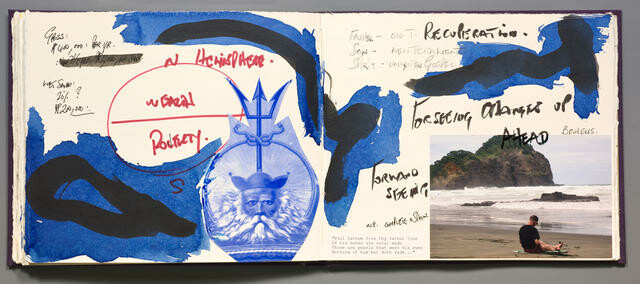 GROSS:
PER YR.
NET SAVED:
20% ?
N HEMISPHERE.
WEALTH
POVERTY.
S
FATHER - OLD T.
SON - NEW TESTAMENT
SPIRIT - UNWRITTEN GOSPEL
RECUPERATION.
FORSEEING CHANGES UP
AHEAD
FORWARD
SEEING
BETHELLS.
"Full fathom five thy father lies
Of his bones are coral made
Those are pearls that were his eyes
Nothing of him but doth fade..."